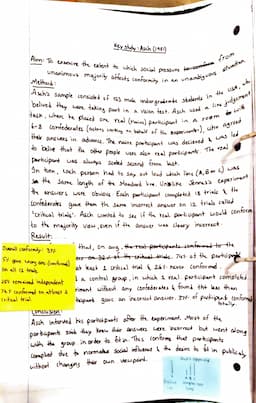 Key study: Asch (1951)
Aim: To examine the extent to which social pressure from
unanimous majority affects conformity in an unambiguous situation
Method:
Asch's sample consisted of 123 male undergraduate students in the USA, who
believed they were taking part in a vision test. Asch used a line judgement
task, where he placed one real (naive) participant in a room with
6-8 confederates (actors working on behalf of the experimenter), who agreed
their answers in advance. The naive participant was deceived & was led
to believe that the other people were also real participants. The real
participant was always seated second from last.
In turn, each person had to say out loud which line (A, B or C) was
the same length of the standard line. Unlike Jenness' experiment
the answers were obvious. Each participant completed 18 trials & the
confederates gave the same incorrect answer on 12 trials called
'critical trials'. Asch wanted to see if the real participant would conform
to the majority view, even if the answer was clearly incorrect.
Result:
Overall conformity: 37%
5% gave wrong ans (conformed)
on all 12 trials
25% remained independent
76% conformed on atleast 1
critical trial.
trial, on avg, the real participants conformed to the
74% of the participants
at least 1 critical trial & 26% never conformed.
a control group, in which 1 real participant completed
experiment without any confederates & found that less than
participants gave an incorrect answer. 37% of participants conformed
totally.
Conclusion:
Asch interviewed his participants after the experiment. Most of the
participants said they knew their answers were incorrect but went along
with the group in order to fit in. This confirms that participants
complied due to normative social influence & the desire to fit in publicly
without changes their own viewpoint.